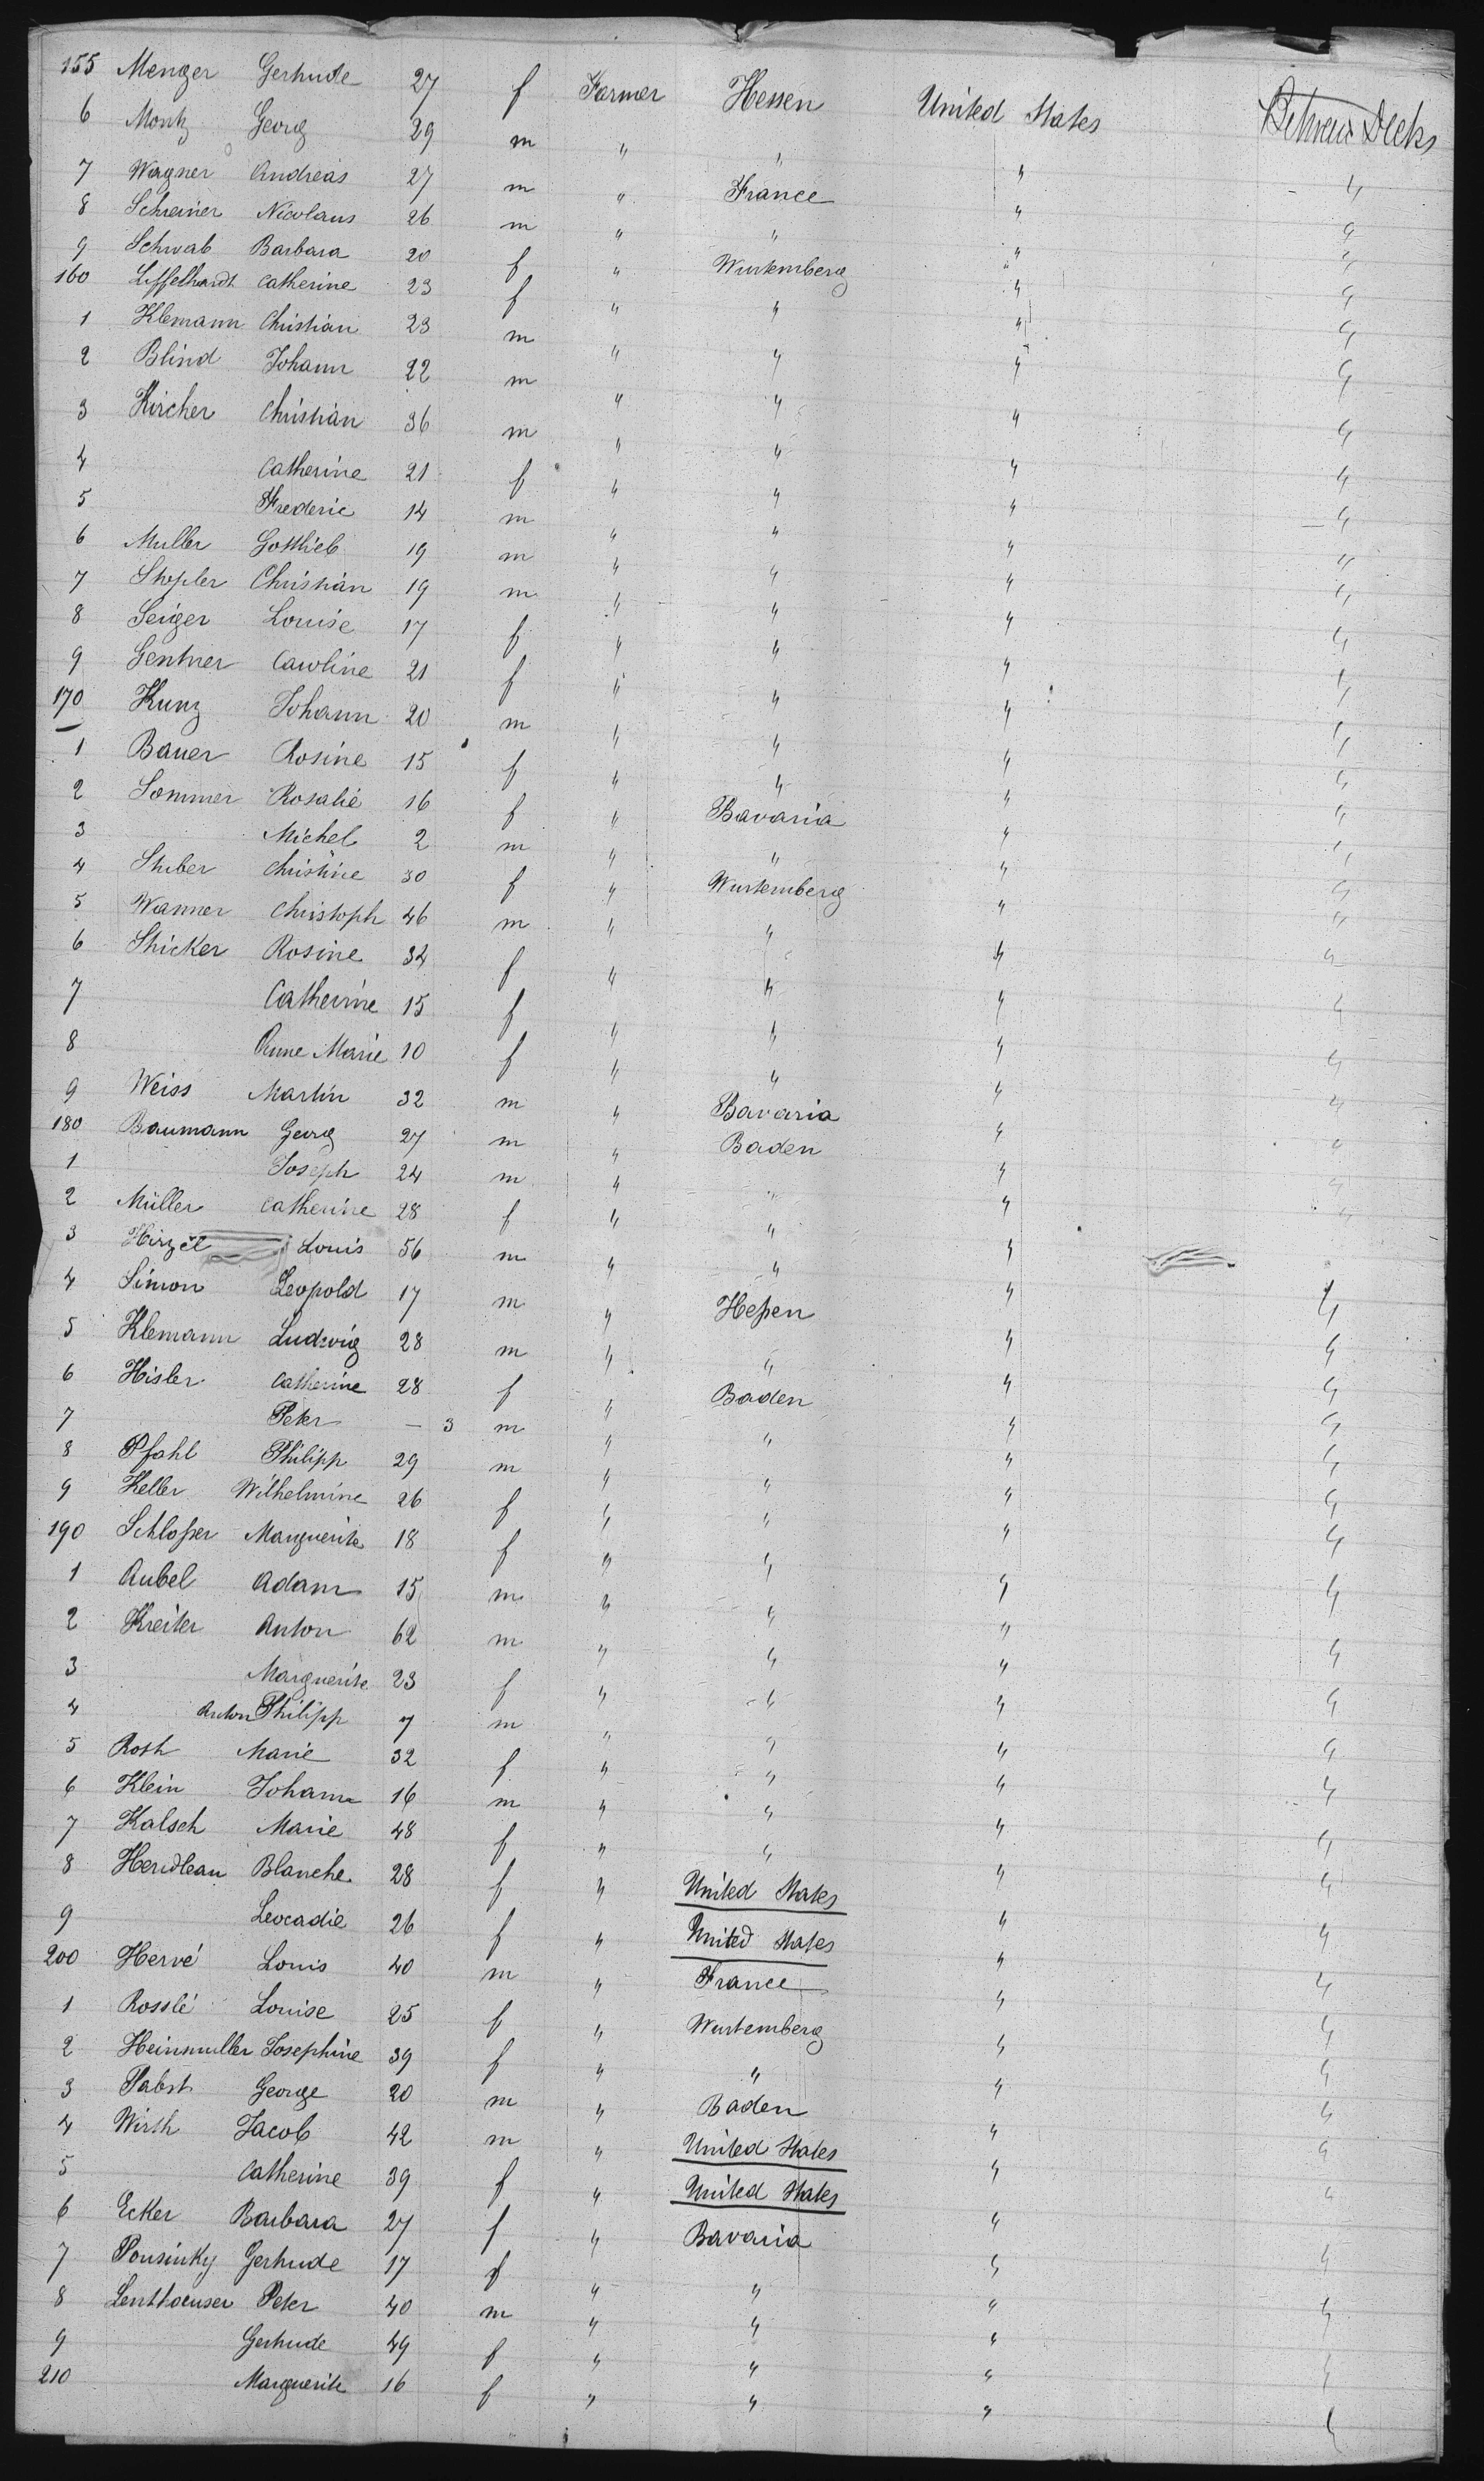 155 Menger Gertrude 27 f Farmer Hessen United States Between Decks
6 Montz Georg 29 m " " " "
7 Wagner Andreas 27 m " France " "
8 Schreiner Nicolaus 26 m " " " "
9 Schwab Barbara 20 f " Wurtemberg " "
160 Liffelhardt Catherine 23 f " " " "
1 Klemann Christian 23 m " " " "
2 Blind Johann 22 m " " " "
3 Kircher Christian 36 m " " " "
4 Catherine 21 f " " " "
5 Frederic 14 m " " " "
6 Muller Gottlieb 19 m " " " "
7 Stopler Christian 19 m " " " "
8 Seiger Louise 17 f " " " "
9 Gentner Caroline 21 f " " " "
170 Kunz Johann 20 m " " " "
1 Bauer Rosine 15 f " " " "
2 Sommer Rosalie 16 f " Bavaria " "
3 Michel 2 m " " " "
4 Stuber Christine 30 f " Wurtemberg " "
5 Wanner Christoph 46 m " " " "
6 Stricker Rosine 34 f " " " "
7 Catherine 15 f " " " "
8 Anne Marie 10 f " " " "
9 Weiss Martin 32 m " Bavaria " "
180 Baumann Georg 27 m " Baden " "
1 Joseph 24 m " " " "
2 Müller Catherine 28 f " " " "
3 Hirzel Louis 56 m " " "
4 Simon Leopold 17 m " Heßen " "
5 Klemann Ludwig 28 m " " " "
6 Hisler Catherine 28 f " Baden " "
7 Peter — 3 m " " " "
8 Pfahl Philipp 29 m " " " "
9 Keller Wilhelmine 26 f " " " "
190 Schloßer Marguerite 18 f " " " "
1 Aubel Adam 15 m " " " "
2 Kreiter Anton 62 m " " " "
3 Marguerite 23 f " " " "
4 Anton Philipp 7 m " " " "
5 Roth Marie 32 f " " " "
6 Klein Johann 16 m " " " "
7 Kalsch Marie 48 f " " " "
8 Heridleau Blanche 28 f " United States " "
9 Leocadie 26 f " United States " "
200 Hervé Louis 40 m " France " "
1 Rosslé Louise 25 f " Wurtemberg " "
2 Heinmuller Josephine 39 f " " " "
3 Pabst George 20 m " Baden " "
4 Wirth Jacob 42 m " United States " "
5 Catherine 39 f " United States " "
6 Ecker Barbara 27 f " Bavaria " "
7 Ponsinky Gertrude 17 f " " " "
8 Lenthaeuser Peter 40 m " " " "
9 Gertrude 49 f " " " "
210 Marguerite 16 f " " " "